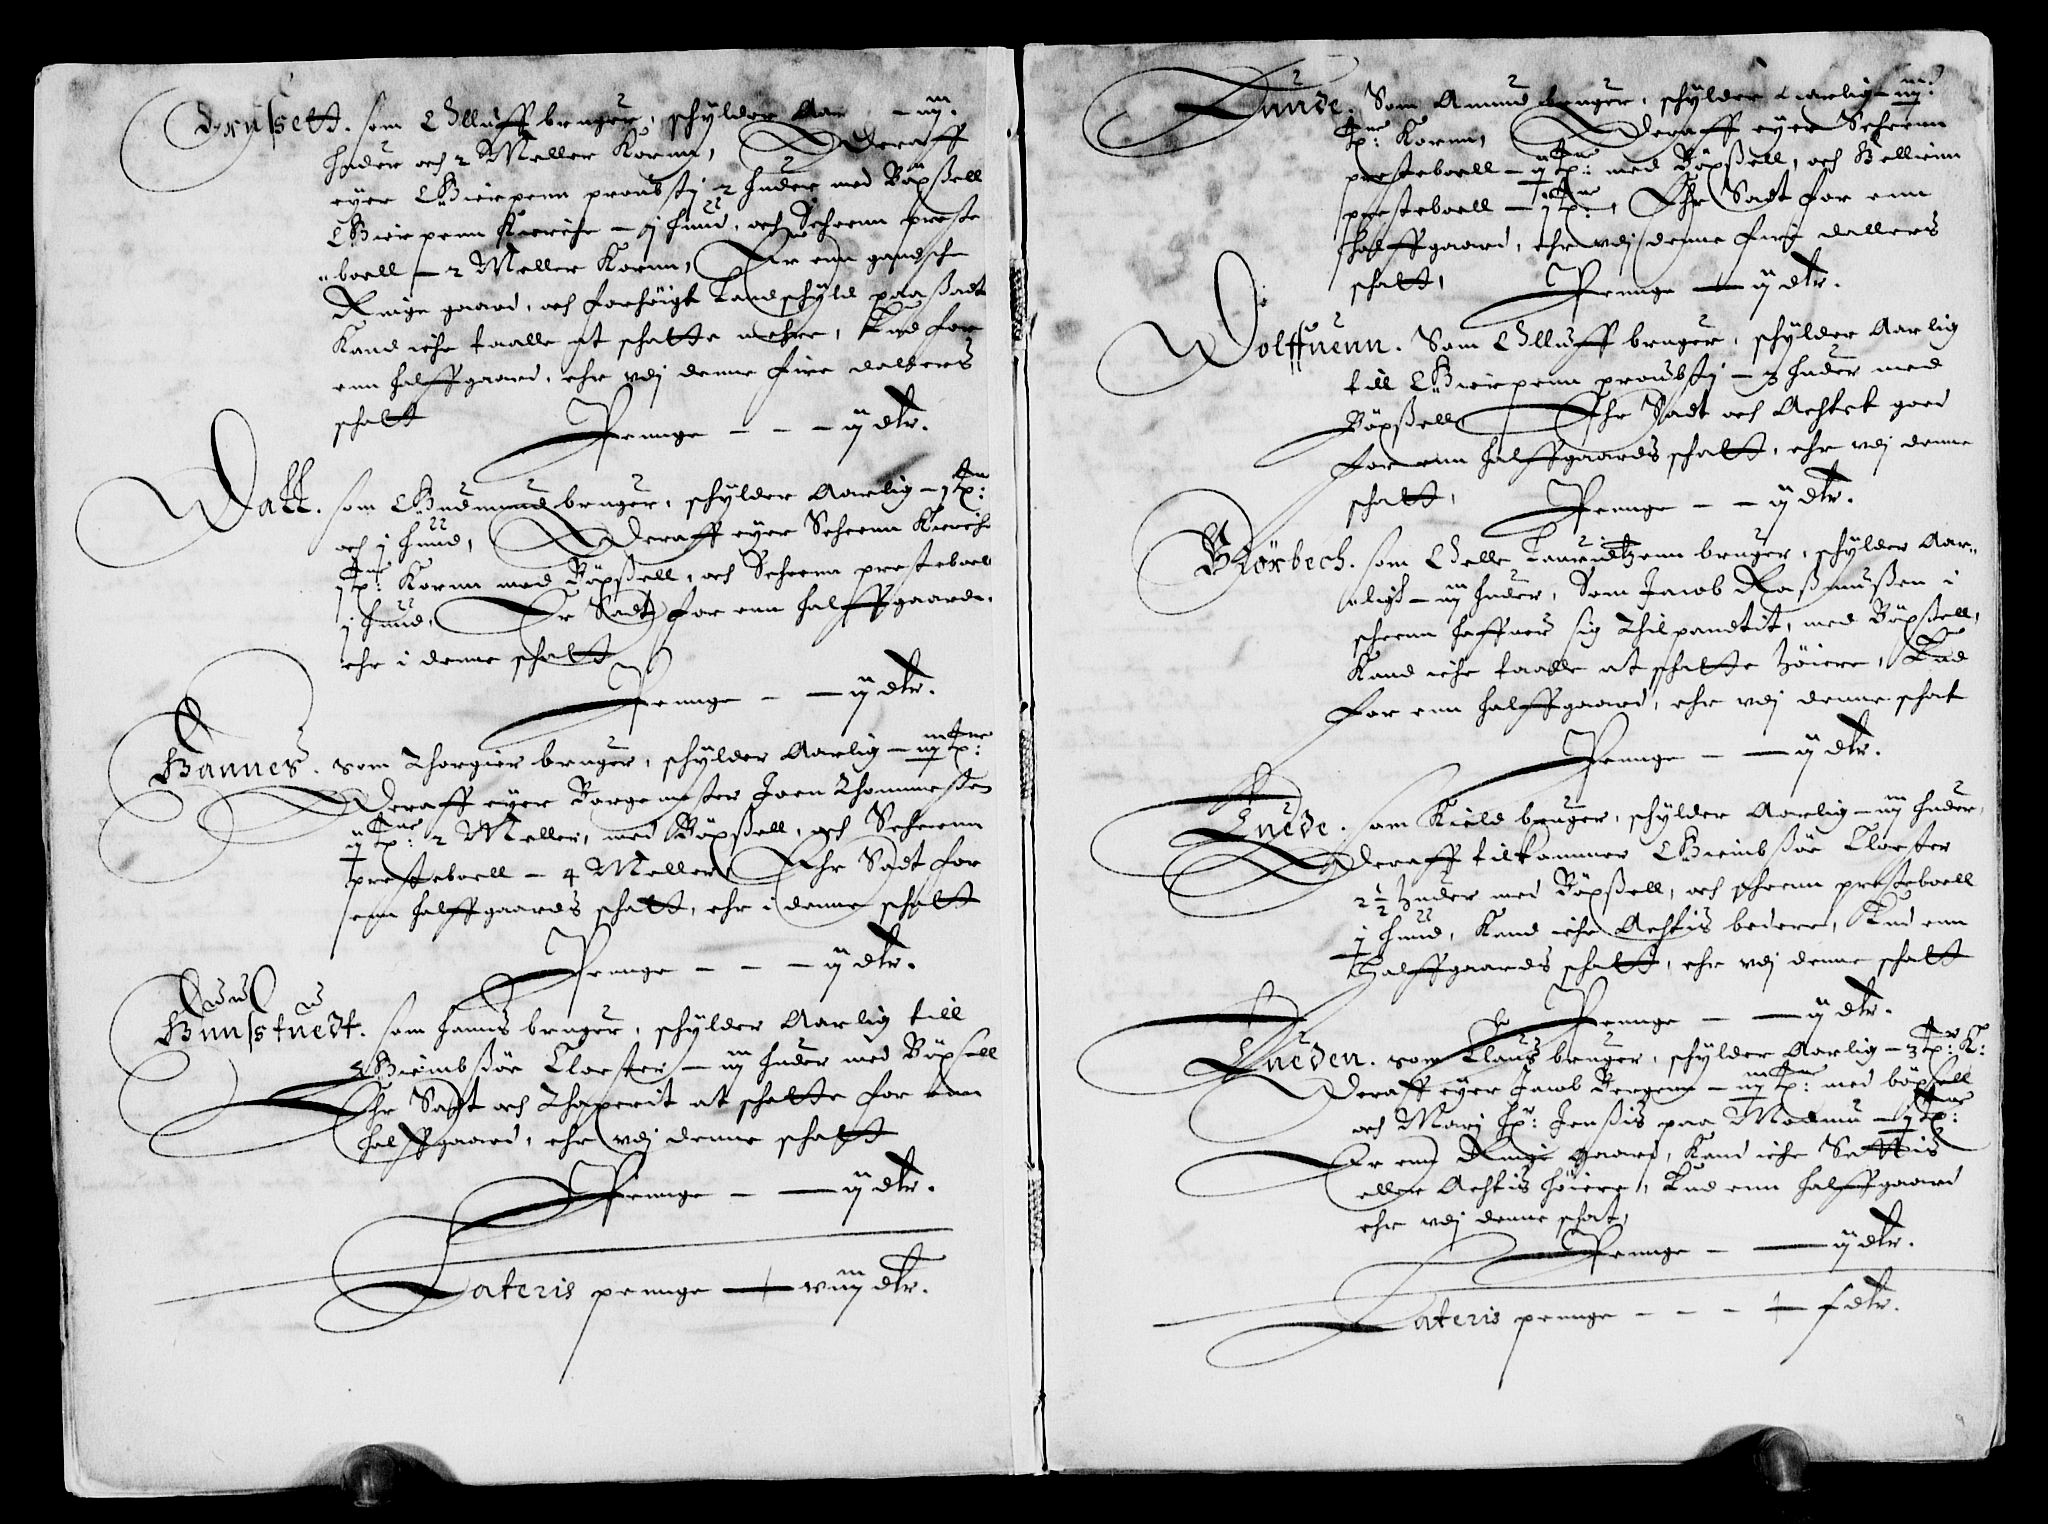 Grusett. som Olluff bruger, schylder Aar — iij.
huder och 2 Meller Kornn, Deraff
eyer Gierpenn proubstj 2 huder med Böxßell
Gierpenn Kierche — j hud, och Scheenn preste
boell — 2 Meller Kornn, Er enn gandsche
Ringe gaard, och forhöigt Landschyld paasadt
Kand iche taalle at schatte mehre, End for
enn halffgaard, ehr vdj denne fire dallers
schatt
Penge — — — ij dlr.
Wall. som Gudmund bruger, schylder Aarlig — 1 tp:
och j hud, Deraff eyer Scheenn Kierche
1 tp: Kornn med Böxßell, och Scheenn presteboell
j hud, Er Sadt for enn halffgaard,
ehr i denne schatt
Penge — — ij dlr.
Hannes. som Thorgier bruger, schylder Aarlig — iij tp:
Deraff eyer Borgemester Joen Thommeßen
ij tp: 2 Meller, med Böxßell, och Scheenn
presteboell — 4 Meller, Ehr Sadt for
enn halffgaards schatt, ehr i denne schatt
Penge — — — ij dlr.
Hunstuedt. som Hanns bruger, schylder Aarlig till
Giembsöe Closter — iij huder med Böxsell
Ehr Sadt och Thaxerit at schatte for enn
halffgaard, ehr vdj denne schatt
Penge — — ij dlr.
Lateris penge — viij dlr.
Lunde. Som Amund bruger, schylder Aarlig — iij
tp: Kornn, Deraff eyer Scheenn
presteboell — ij tp: med Böxßell, och Bellenn
presteboell — 1 tp:, Ehr Sadt for enn
halffgaard, ehr vdj denne firj dallers
schatt,
Penge — ij dlr.
Wolffuenn. Som Olluff bruger, schylder Aarlig
till Gierpenn proubstj — 3 huder med
Böxßell, Ehr Sadt och Achtet goed
for enn halffgaards schatt, ehr vdj denne
schatt,
Penge — — ij dlr.
Börbech. som Helle Lauridtzenn bruger, schylder Aar-
ligt — iij huder, Som Jacob Rasmußen i
scheenn haffuer sig Thilpandtit, med Böxßell,
Kand iche taalle at schatte höiere, End
for enn halffgaard, ehr vdj denne schat
Penge — — ij dlr.
Enede. som Kield bruger, schylder Aarlig — iij huder,
Deraff tilkommer Giembsöe Closter
2 1/2 huder med Böxßell, och scheenn presteboell
j hud, Kand iche Achtis bedere, End enn
halffgaards schatt, ehr vdj denne schatt
Penge — — ij dlr.
Eneden. som Claus bruger, schylder Aarlig — 3 tp: K:
Deraff eyer Jacob Bergenn — iij tp: med böxsell
och Marj Hr: Jenßis paa Moelmü — 1 tp:
Er enn Ringe gaard, Kand iche Settis
eller Achtis höiere, End enn halffgaard
ehr vdj denne schat,
Penge — — ij dlr.
Lateris penge — — — — x dlr.